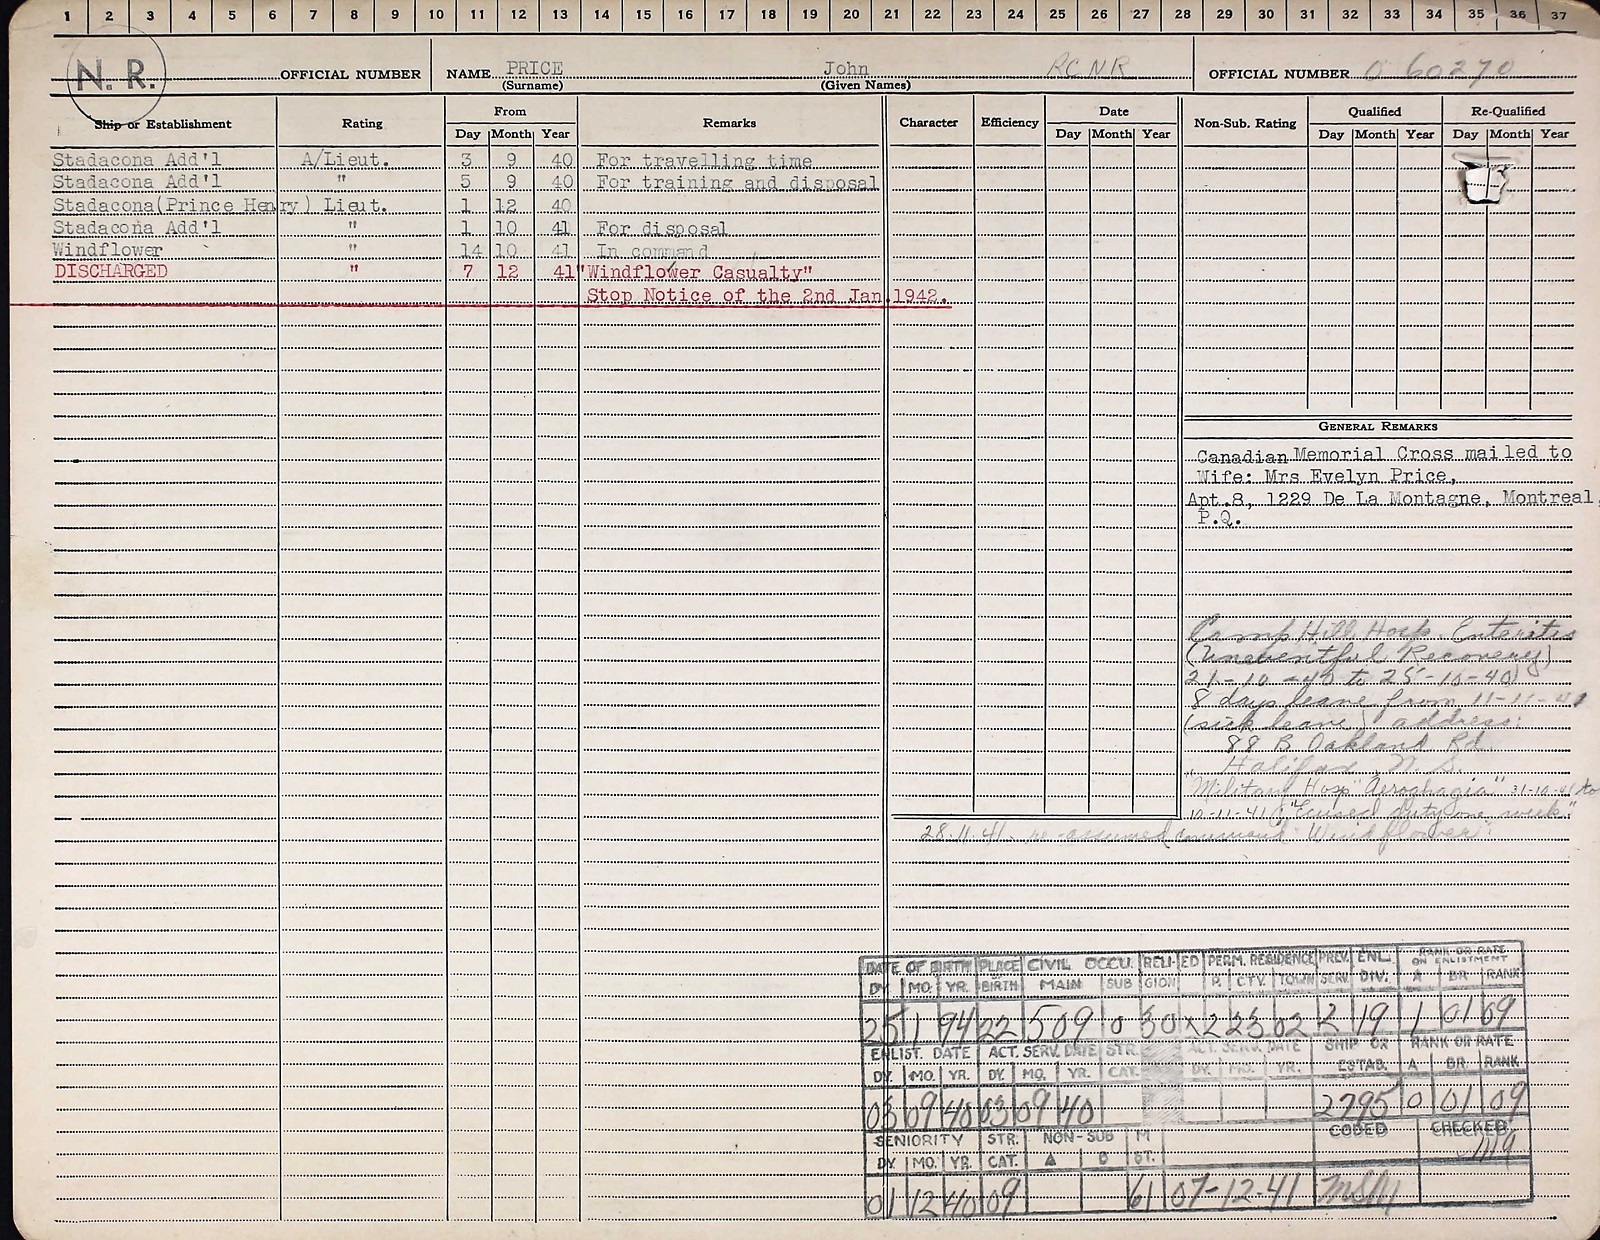 1 2 3 4 5 6 7 8 9 10 11 12 13 14 15 16 17 18 19 20 21 22 23 24 25 26 27 28 29 30 31 32 33 34 35 36 37
N. R. OFFICIAL NUMBER NAME PRICE John RCNR OFFICIAL NUMBER O 60270
(Surname) (Given Names)
Ship or Establishment Rating From Remarks Character Efficiency Date Non-Sub. Rating Qualified Re-Qualified
Day Month Year Day Month Year Day Month Year Day Month Year
Stadacona Add'l A/Lieut. 3 9 40 For travelling time
Stadacona Add'l " 5 9 40 For training and disposal
Stadacona(Prince Henry) Lieut. 1 12 40
Stadacona Add'l " 1 10 41 For disposal
Windflower " 14 10 41 In command
DISCHARGED " 7 12 41 "Windflower Casualty"
Stop Notice of the 2nd Jan.1942.
GENERAL REMARKS
Canadian Memorial Cross mailed to
Wife: Mrs Evelyn Price,
Apt.8, 1229 De La Montagne, Montreal,
P.Q.
Camp Hill Hosp. Enteritis
(Uneventful Recovery)
21-10-40 to 25-10-40)
8 days leave from 11-11-41
(sick leave) address:
88 B Oakland Rd.
Halifax, N.S.
"Military Hosp "Aerophagia" 31-10-41 to
10-11-41 ("Excused duty one week"
28.11.41. re-assumed command Windflower.
DATE OF BIRTH PLACE OF BIRTH CIVIL OCCU. RELIGION ED PERM. RESIDENCE PREV. SERV. ENL. DIV. RANK OR RATE ON ENLISTMENT
DY. MO. YR. MAIN SUB P. CTY. TOWN A BR RANK
25 1 94 22 509 0 30 x 2 23 02 2 19 1 01 09
ENLIST. DATE ACT. SERV. DATE STR. ACT. SERV. DATE SHIP OR RANK OR RATE
DY. MO. YR. DY. MO. YR. CAT. DY. MO. YR. ESTAB. A BR. RANK
03 09 40 03 09 40 2795 0 01 09
SENIORITY STR. NON-SUB M CODED CHECKED
DY. MO. YR. CAT. A B ST.
01 12 40 09 61 07-12-41